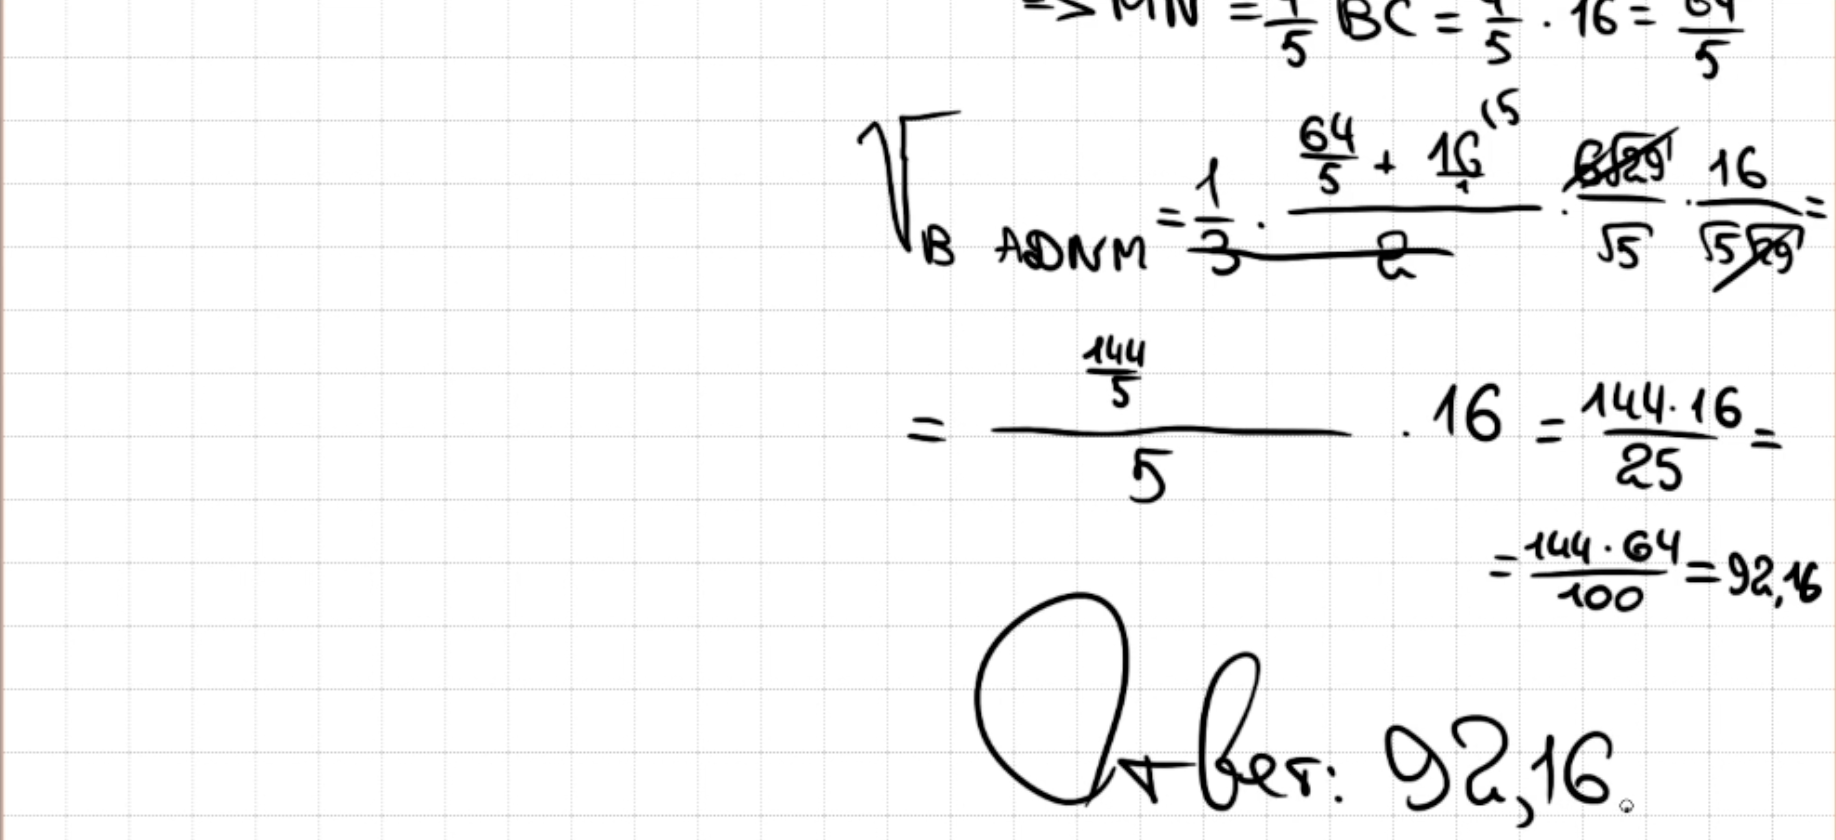 => MN = 4/5 BC = 4/5 · 16 = 64/5
V_{B ADNM} = 1/3 · (64/5 + 16/1^{(5})/2 · 6√29/√5 · 16/(√5√29) =
= (144/5)/5 · 16 = 144·16/25 =
= 144·64/100 = 92,16
Ответ: 92,16.